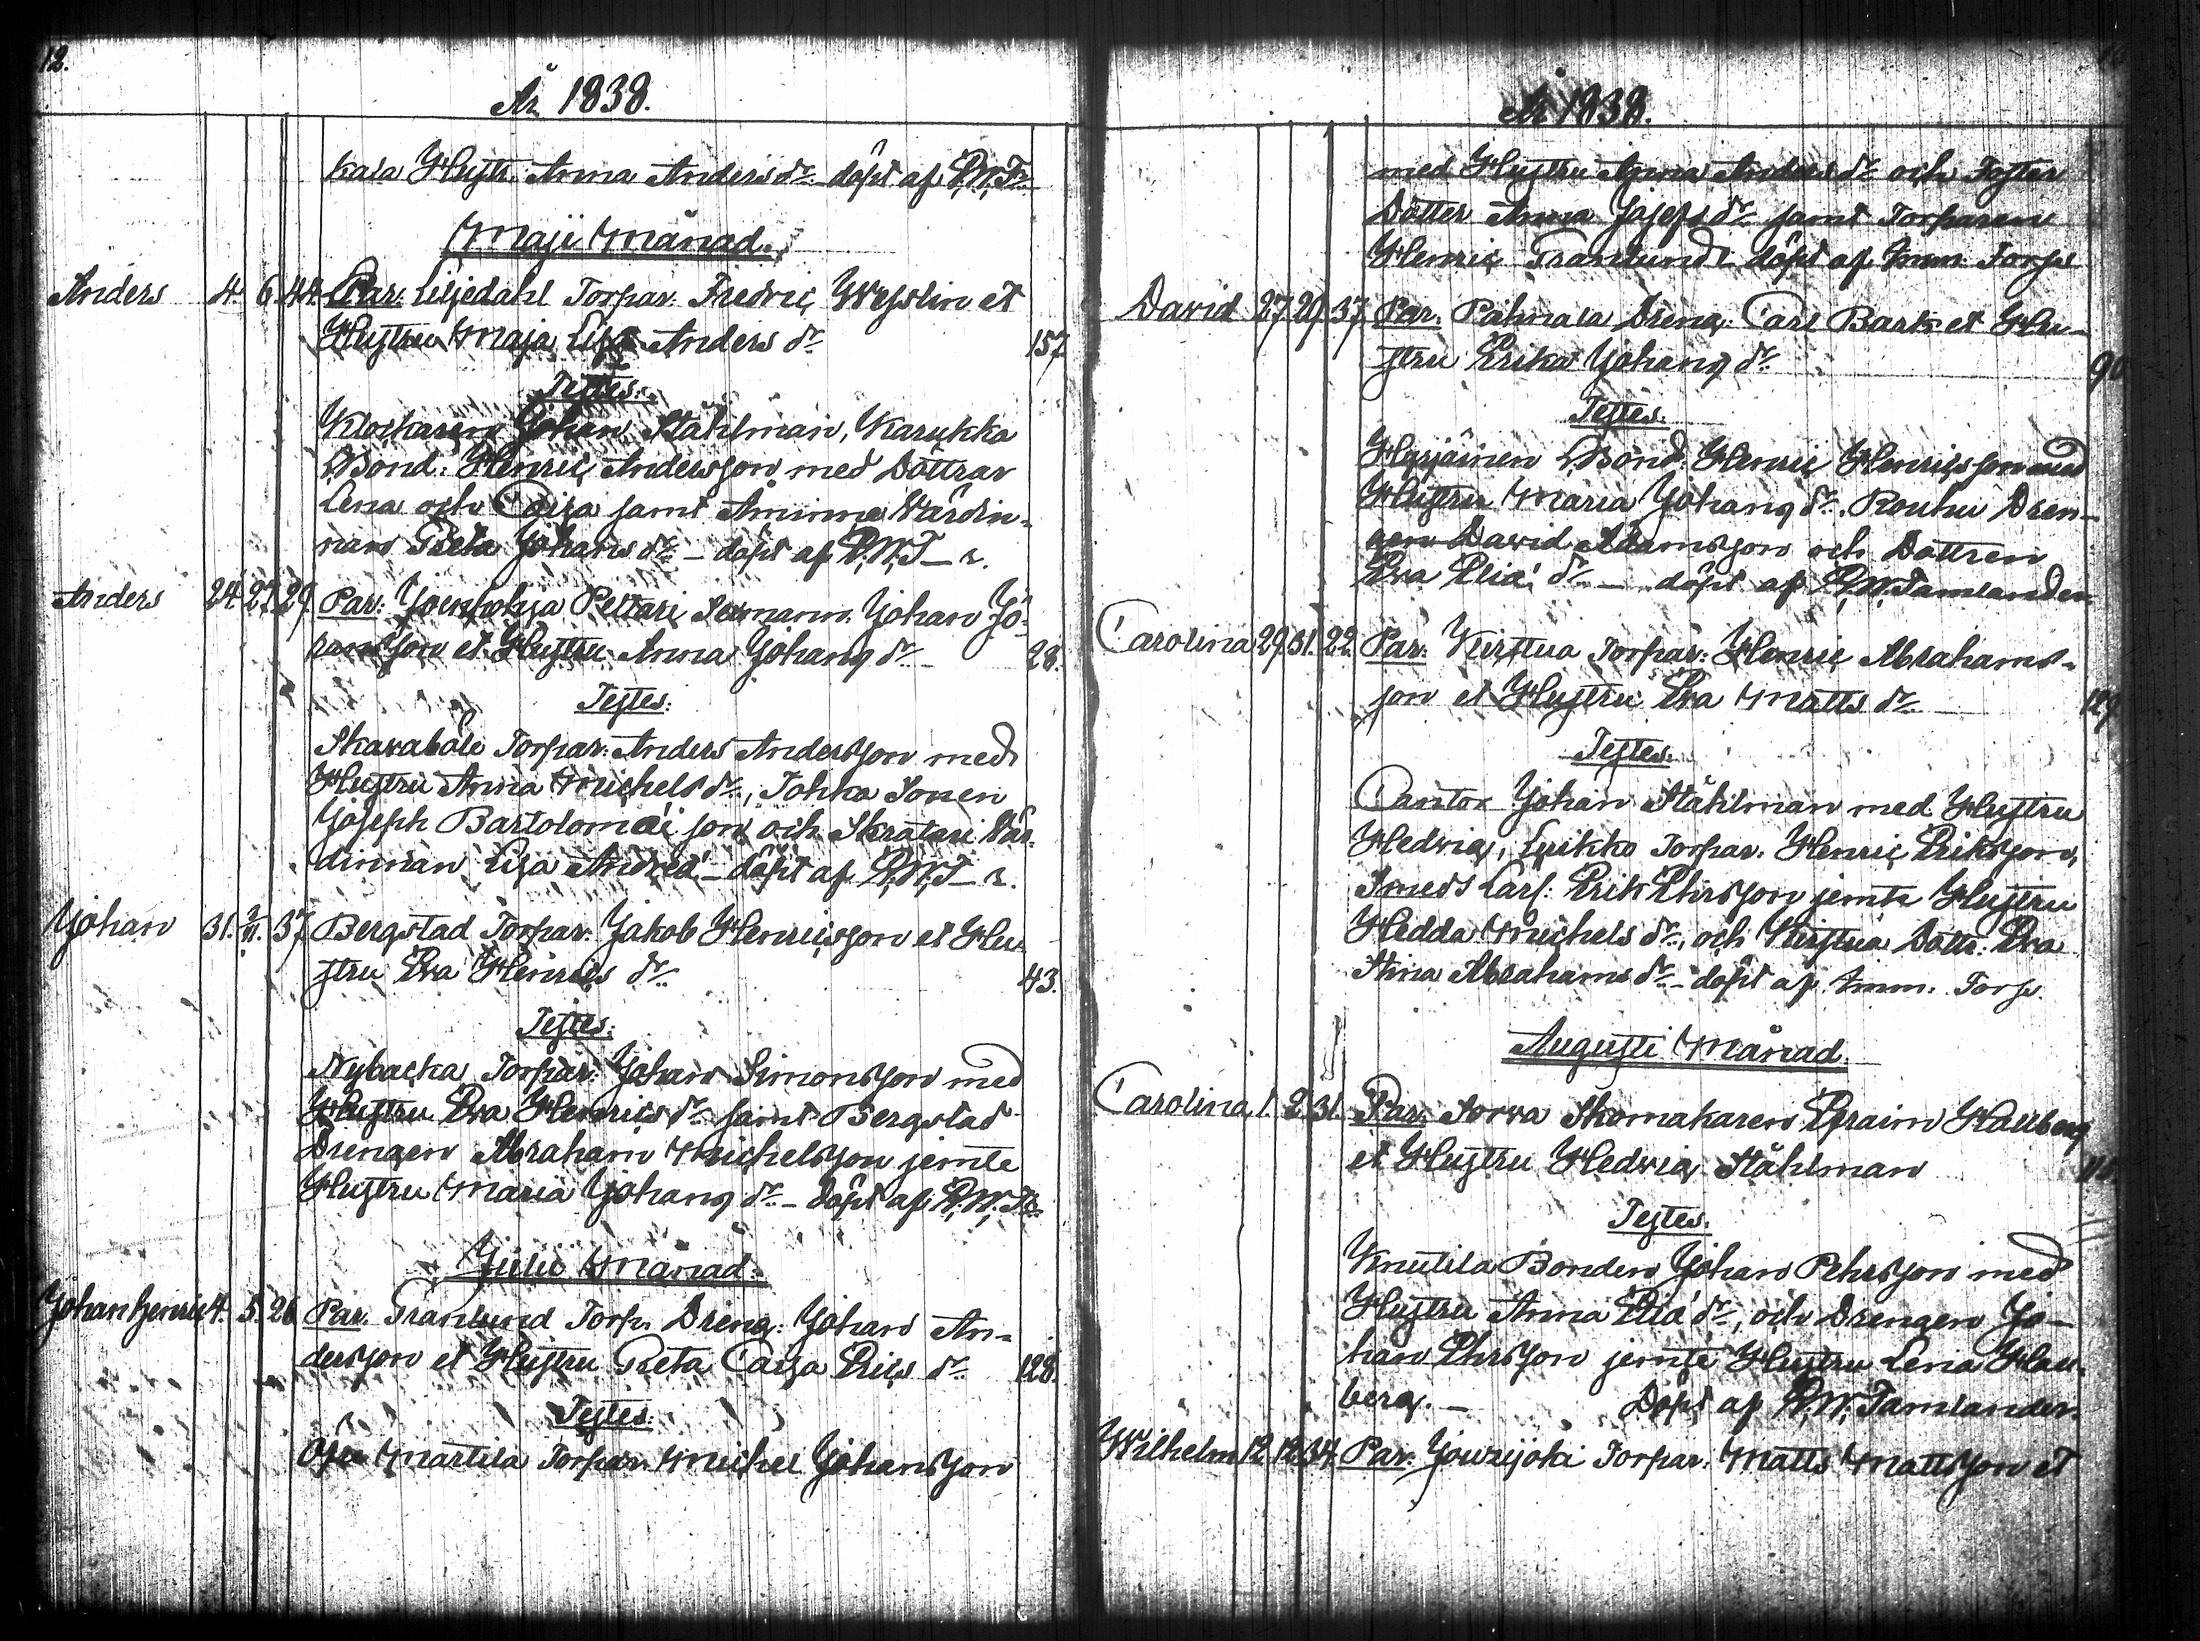 12.
År 1838.
kala Hustr. Anna Andersdr. döpt af P.W.Tr.
Maji Månad.
Anders 4. 6. 44. Par: Liljedahl Torpar. Fredric Wesslin et
Hustru Maja Lisa Anders dr. 157
Testes:
Klockaren Johan Ståhlman, Karukka
Bond. Henric Andersson med Döttrar
Lena och Caisa samt Aminne Värdin-
nan Greta Johans dr. – döpt af P.W.T–r.
Anders 24. 27. 29. Par: Pettari Johan Jö-
ransson et Hustru Anna Johans dr. 28.
Testes:
Skavaböle Torpar. Anders Andersson med
Hustru Anna Michelsdr., Tohka Sonen
Joseph Bartolomæi son och Skrätari Vär-
dinnan Lisa Andreæ – döpt af P.W.T–r.
Johan 31. 2/VI. 37. Bergstad Torpar. Jakob Henricsson et Hu-
stru Eva Henrics dr. 43.
Testes:
Nybacka Torpar. Johan Simonsson med
Hustru Eva Henricsdr. samt Bergstad
Drengen Abraham Michelsson jemte
Hustru Maria Johans dr. – döpt af P.W.Tr.
Julii Månad.
Johan Henric 4. 5. 26 Par. Tranlund Torp. Dreng. Johan An-
dersson et Hustru Greta Caisa Erics dr. 128.
Testes:
Öfre Martila Torpar. Michel Johansson
År 1838.
med Hustru Anna Anders dr. och Foster
Dotter Anna Josefs dr. samt Torparen
Henric Tranlund döpt af Imm. Torps
David 27. 29. 37. Par. Pahnala Dreng. Carl Bark et Hu-
stru Erika Johans dr. 90
Testes:
Hyrjäinen Bond. Henric Henricsson med
Hustru Maria Johans dr. Rouhu Dren-
gen David Adamsson och Dottren
Eva Eliæ dr. – döpt af P.W.Tamlander
Carolina 29. 31. 22. Par: Kirstua Torpar: Henric Abrahams-
son et Hustru Eva Matts dr. 129
Testes:
Cantor Johan Ståhlman med Hustru
Hedvig, Luikko Torpar. Henric Eriksson,
Smeds Carl: Erik Ehrsson jemte Hustru
Hedda Michels dr., och Kirstua Dottr. Eva
Stina Abrahams dr. – döpt af Imm. Torps.
Augusti Månad.
Carolina 1. 2. 31. Par. Sorva Skomakaren Efraim Hallberg
et Hustru Hedvig Ståhlman
Testes.
Knutila Bonden Johan Pehrsson med
Hustru Anna Eliæ dr., och Drengen Jo-
han Ehrsson jemte Hustru Lena Hall-
berg. – Döpt af P.W.Tamlander.
Wilhelm 12. 12. 34. Par. Torpar. Matts Mattsson et